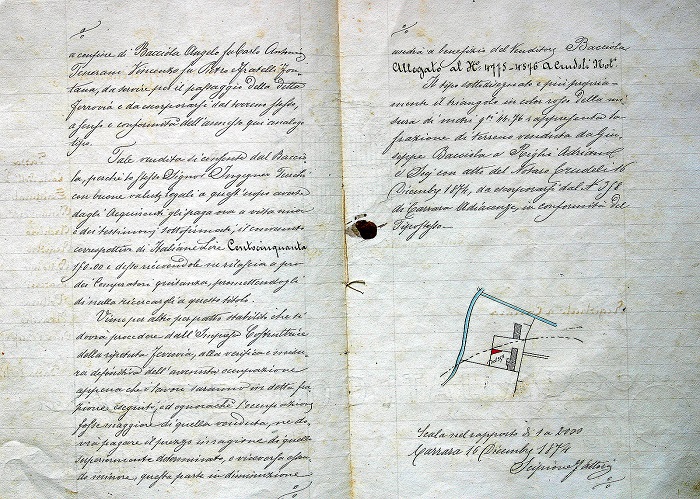 a confine di Bacciola Angelo fu Carlo Antonio,
Tenerani Vincenzo fu Pietro e fratelli Fon-
tana, da servire pel il passaggio della detta
Ferrovia e da scorporarsi dal terreno stesso,
a senso e conformità dell'annesso qui analogo
tipo.
Tale vendita si consente dal Baccio-
la, perché lo stesso Signor Ingegner Turchi
con buone valute legali a quest'uopo avute
dagli Acquirenti gli paga ora a vista mia
e dei testimonj sottofirmati, il convenuto
correspettivo di Italiane Lire Centocinquanta
150.00 e desso ricevendole ne rilascia a pro
dei Compratori quietanza, promettendogli
di nulla ricercargli a questo titolo.
Viene per altro per patto stabilito che si
dovrà procedere dall'Impresa Costruttrice
della ripetuta Ferrovia, alla verifica e misu-
ra definitiva dell'avvenuta occupazione
appena che i lavori saranno in detta fra-
zione eseguiti, ed ognorachè l'occupazione
fosse maggiore di quella venduta, ne do-
vrà pagare il prezzo in ragione di quello
superiormente determinato, e viceversa essen-
do minore, questa parte in diminuzione
andrà a benefizio del Venditore Bacciola
Allegato al N. 10775-10576 A Crudeli Not.
Il tipo sottodisegnato e più propria-
mente il triangolo in color rosso della mi-
sura di metri q.ri 14.76 rappresenta la
frazione di terreno venduta da Giu-
seppe Bacciola a Righi Adriano
e Soci con atto del Notaro Crudeli 16
Dicembre 1874, da scorporarsi dal
di Carrara Adiacenze, in conformità del
Tipo stesso
Scala nel rapporto di 1 a 2000
Carrara 16 Dicembre 1874
Scipione